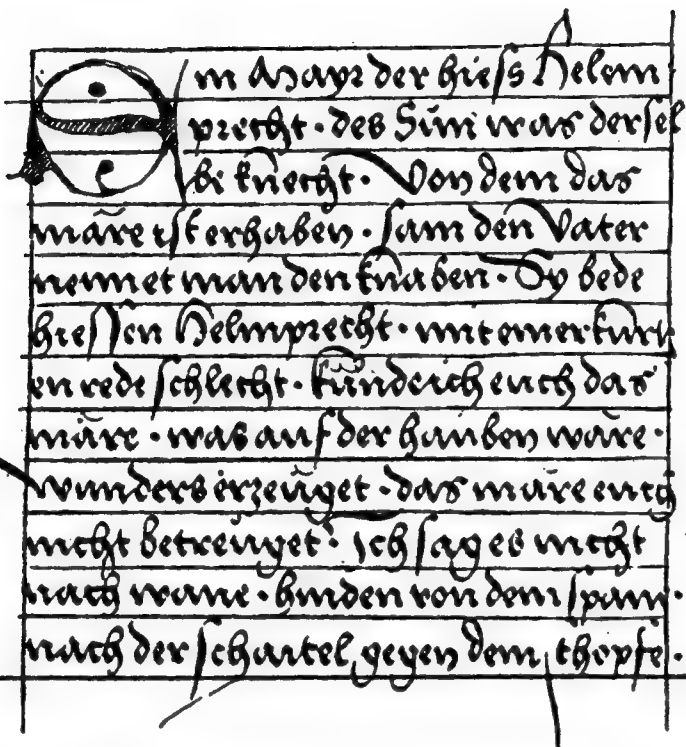 Ein Mayr der hiess Helem
precht · des Sun was dersel
bi knecht · Von dem das
märe ist erhaben · sam den Vater
nennet man den knaben · Sy bede
hiessen Helmprecht · mit einer kurtz
en rede schlecht · künde ich euch das
märe · was auf der hauben wäre ·
wunders erzeüget · das märe euch
nicht betreüget · Ich sag es nicht
nach wane · hinden von dem span ·
nach der schaitel gegen dem schopfe ·